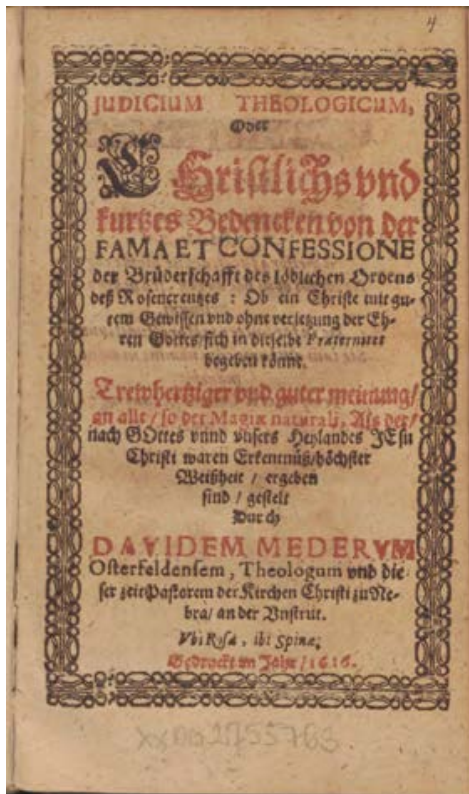 4
JUDICIUM THEOLOGICUM,
Oder
CHristlichs vnd
kurtzes Bedencken von der
FAMA ET CONFESSIONE
der Brüderschafft des löblichen Ordens
deß Rosencreutzes : Ob ein Christe mit gu-
tem Gewissen vnd ohne verletzung der Eh-
ren Gottes / sich in dieselbe Fraternitet
begeben könne.
Trewhertziger vnd guter meinung /
an alle / so der Magiæ naturali, Als der /
nach GOttes vnnd vnsers Heylandes JEsu
Christi waren Erkentnüß / höchster
Weißheit / ergeben
sind / gestelt
Durch
DAVIDEM MEDERVM
Osterfeldensem, Theologum vnd die-
ser zeit Pastorem der Kirchen Christi zu Ne-
bra / an der Vnstrut.
Vbi Rosa, ibi Spinæ.
Gedruckt im Jahr / 1616.
2755763